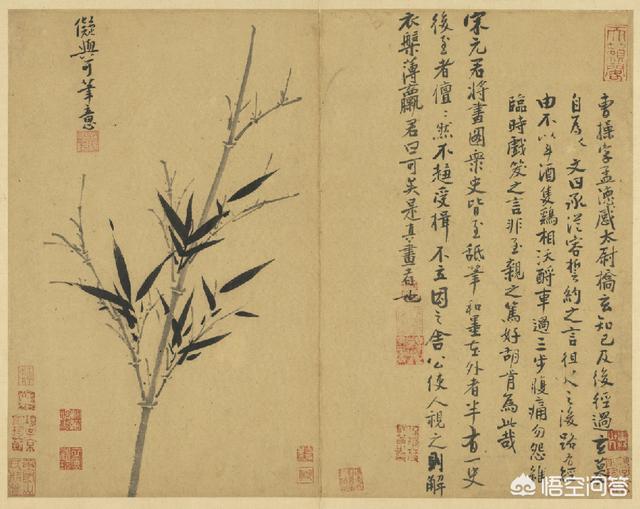 曹操字孟德感太尉橋玄知己及後經過玄墓
自為文曰承從容誓約之言徂之後路有經
由不以斗酒隻鷄相沃酹車過三步腹痛勿怨雖
臨時戲笑之言非至親之篤好胡肯為此哉
宋元君將畫圖衆史皆至舐筆和墨在外者半有一史
後至者儃〻然不趨受揖不立因之舍公使人視之則解
衣槃薄臝君曰可矣是真畫者也
儗與可筆意
悟空问答